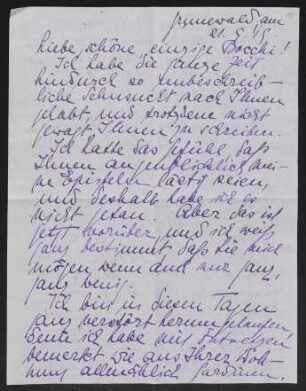 Grunewald, am
21. 5. 15.
Liebe schöne, einzige Bocchi!
Ich habe die ganze Zeit
hindurch so unbeschreib-
liche Sehnsucht nach Ihnen
gehabt, und trotzdem nicht
gewagt Ihnen zu schreiben.
Ich hatte das Gefühl, daß
Ihnen augenblicklich mei-
ne Episteln lästig seien,
und deshalb habe ich es
nicht getan. Aber das ist
jetzt vorüber, und ich weiß
ganz bestimmt, daß Sie mich
mögen, wenn auch nur ganz,
ganz wenig.
Ich bin in diesen Tagen
ganz verstört herumgelaufen,
denn ich habe mit Entsetzen
bemerkt wie aus Ihrer Woh-
nung allmählich Gardinen,